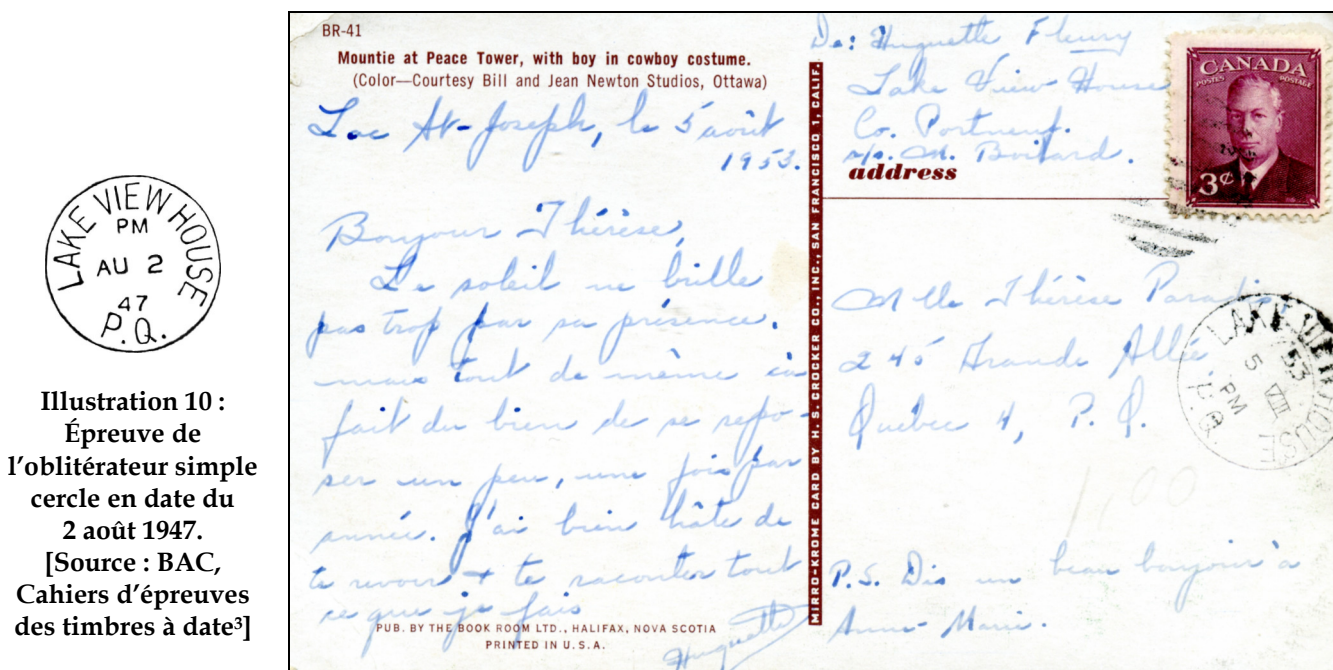 LAKE VIEW HOUSE
PM
AU 2
47
P.Q.
Illustration 10 :
Épreuve de
l’oblitérateur simple
cercle en date du
2 août 1947.
[Source : BAC,
Cahiers d’épreuves
des timbres à date³]
BR-41
Mountie at Peace Tower, with boy in cowboy costume.
(Color—Courtesy Bill and Jean Newton Studios, Ottawa)
Lac St-Joseph, le 5 août
1953.
Bonjour Thérèse,
Le soleil ne brille
pas trop par sa présence.
mais tout de même ça
fait du bien de se repo-
ser un peu, une fois par
année. J'ai bien hâte de
te revoir + te raconter tout
ce que je fais
Huguette
PUB. BY THE BOOK ROOM LTD., HALIFAX, NOVA SCOTIA
PRINTED IN U.S.A.
MIRRO-KROME CARD BY H. S. CROCKER CO., INC., SAN FRANCISCO 1, CALIF.
De: Huguette Fleury
Lake View House
Co. Portneuf.
M. Boilard.
address
CANADA
POSTES POSTAGE
3¢
Mlle Thérèse Paradis
245 Grande Allée
Québec 4, P.Q.
LAKE VIEW HOUSE
53
5 VIII
PM
P.Q.
100
P.S. Dis un beau bonjour à
Anne-Marie.